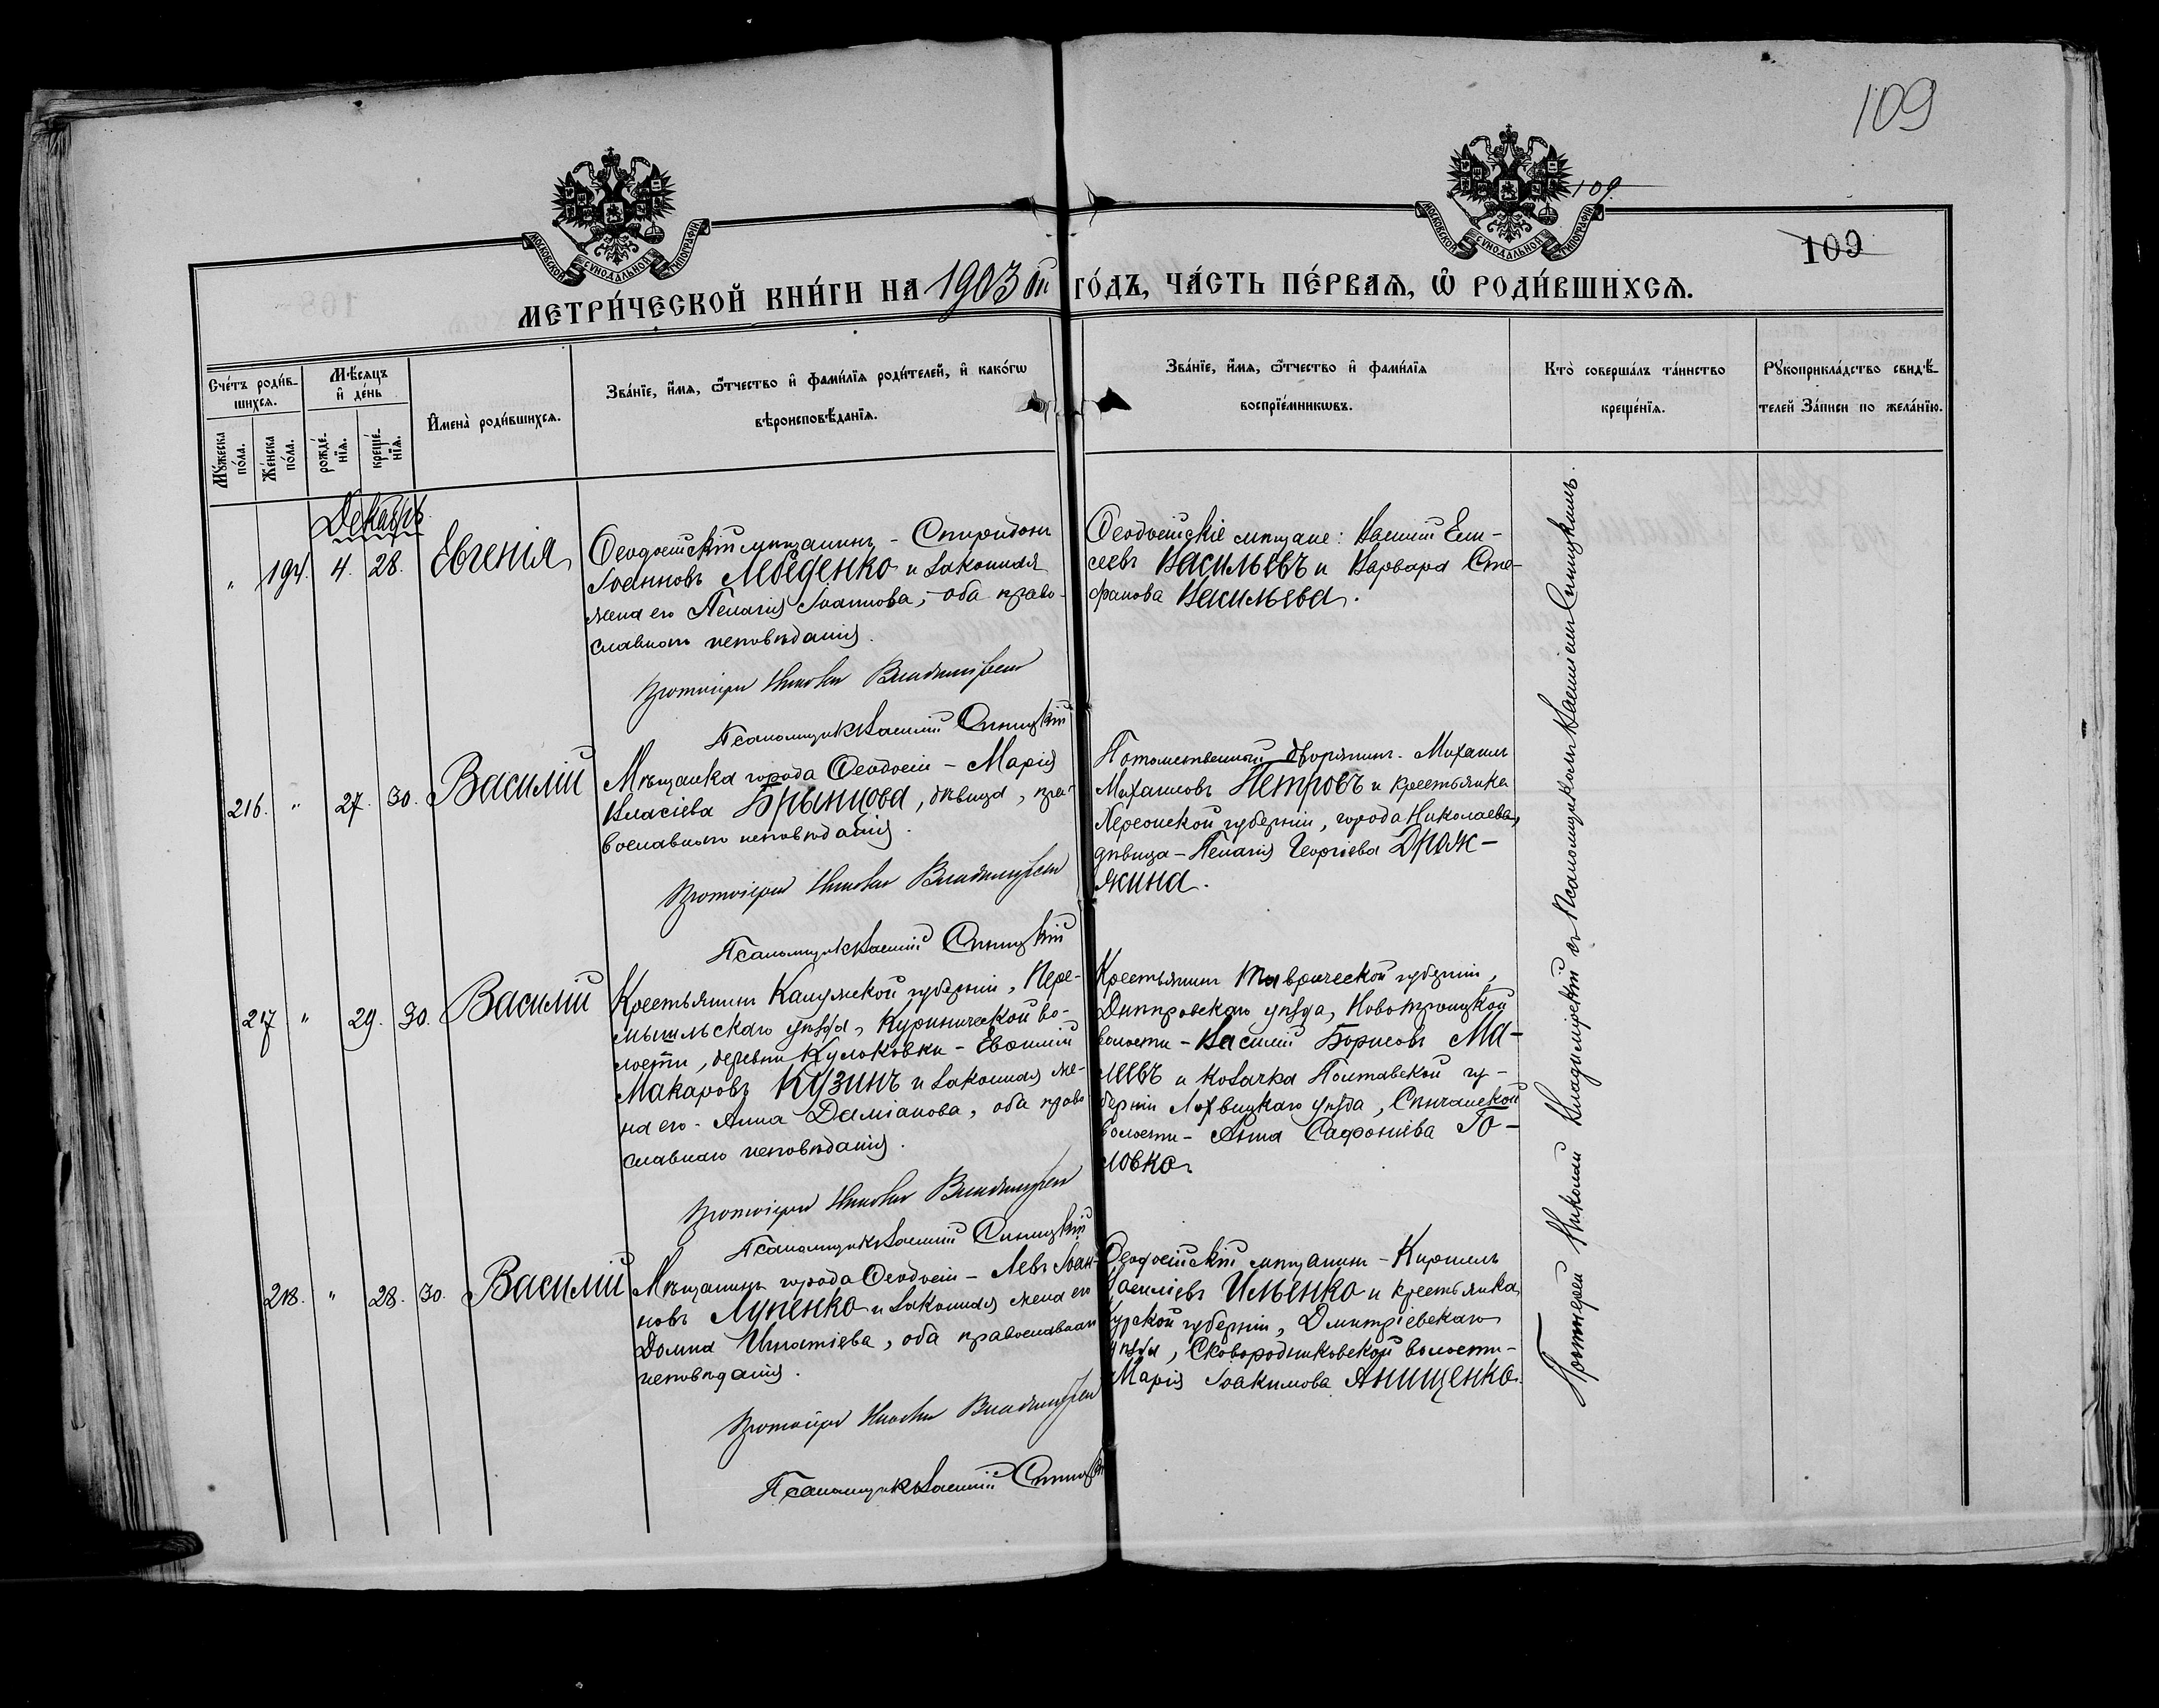 109
109
109
МОСКОВСКОЙ СѴНОДАЛЬНОЙ ТИПОГРАФІИ
МОСКОВСКОЙ СѴНОДАЛЬНОЙ ТИПОГРАФІИ
МЕТРИ́ЧЕСКОЙ КНИ́ГИ НА 1903 ой ГО́ДЪ, ЧА́СТЬ ПЕ́РВАѦ, Ѡ РОДИ́ВШИХСѦ.
Сче́тъ роди́в-
шихсѧ.
Мꙋ́жеска по́ла.
Же́нска по́ла.
Мѣ́сѧцъ
и҆ де́нь
рожде́-
нїѧ.
креще́-
нїѧ.
И҆мена̀ роди́вшихсѧ.
Зва́нїе, и҆́мѧ, ѻ҆́тчество и҆ фами́лїѧ роди́телей, и҆ како́гѡ
вѣроисповѣ́данїѧ.
Зва́нїе, и҆́мѧ, ѻ҆́тчество и҆ фами́лїѧ
воспрїе́мникѡвъ.
Кто̀ соверша́лъ та́инство
креще́нїѧ.
Рꙋкоприкла́дство свидѣ́-
телей за́писи по жела́нїю.
Декабрь
" 194. 4. 28. Евгенія
Ѳеодосійскій мѣщанинъ - Спиридонъ
Іоанновъ Лебеденко и законная
жена его Пелагія Іоаннова, - оба право-
славнаго исповѣданія.
Протоіерей Николай Владимірскій
Псаломщикъ Василій Синицкій
Ѳеодосійскіе мѣщане: Василій Ели-
сеевъ Васильевъ и Варвара Сте-
фанова Васильева.
216. " 27. 30. Василій
Мѣщанка города Ѳеодосіи - Марія
Власіева Брынцова, дѣвица, пра-
вославнаго исповѣданія.
Протоіерей Николай Владимірскій
Псаломщикъ Василій Синицкій
Потомственный дворянинъ - Михаилъ
Михаиловъ Петровъ и крестьянка
Херсонской губерніи, города Николаева,
дѣвица - Пелагія Георгіева Дрож-
жина.
217 " 29. 30. Василій
Крестьянинъ Калужской губерніи, Пере-
мышльскаго уѣзда, Куринической во-
лости, деревни Кулоковки - Евѳимій
Макаровъ Кузинъ и законная же-
на его - Анна Даміанова, оба право
славнаго исповѣданія.
Протоіерей Николай Владимірскій
Псаломщикъ Василій Синицкій
Крестьянинъ Таврической губерніи,
Днѣпровскаго уѣзда, Новотроицкой
волости - Василій Борисовъ Ма-
леевъ и козачка Полтавской гу-
берніи Лохвицкаго уѣзда, Сенчанской
волости - Анна Сафоніева Го-
ловко.
218. " 28. 30. Василій
Мѣщанинъ города Ѳеодосіи - Левъ Іоан-
новъ Лупенко и законная жена его
Домна Игнатіева, оба православнаго
исповѣданія.
Протоіерей Николай Владимірскій
Псаломщикъ Василій Синицкій
Ѳеодосійскій мѣщанинъ - Кириллъ
Василіевъ Ильенко и крестьянка
Курской губерніи, Дмитріевскаго
уѣзда, Сковородниковской волости -
Марія Іоакимова Анищенко.
Протоіерей Николай Владимірскій съ Псаломщикомъ Василіемъ Синицкимъ.